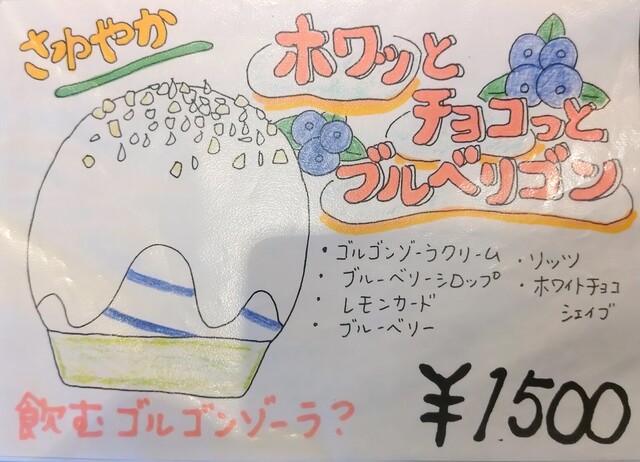 さわやか
ホワッと
チョコっと
ブルベリゴン
・ゴルゴンゾーラクリーム
・ブルーベリーシロップ
・レモンカード
・ブルーベリー
・リッツ
・ホワイトチョコ
シェイブ
飲むゴルゴンゾーラ?
¥1500